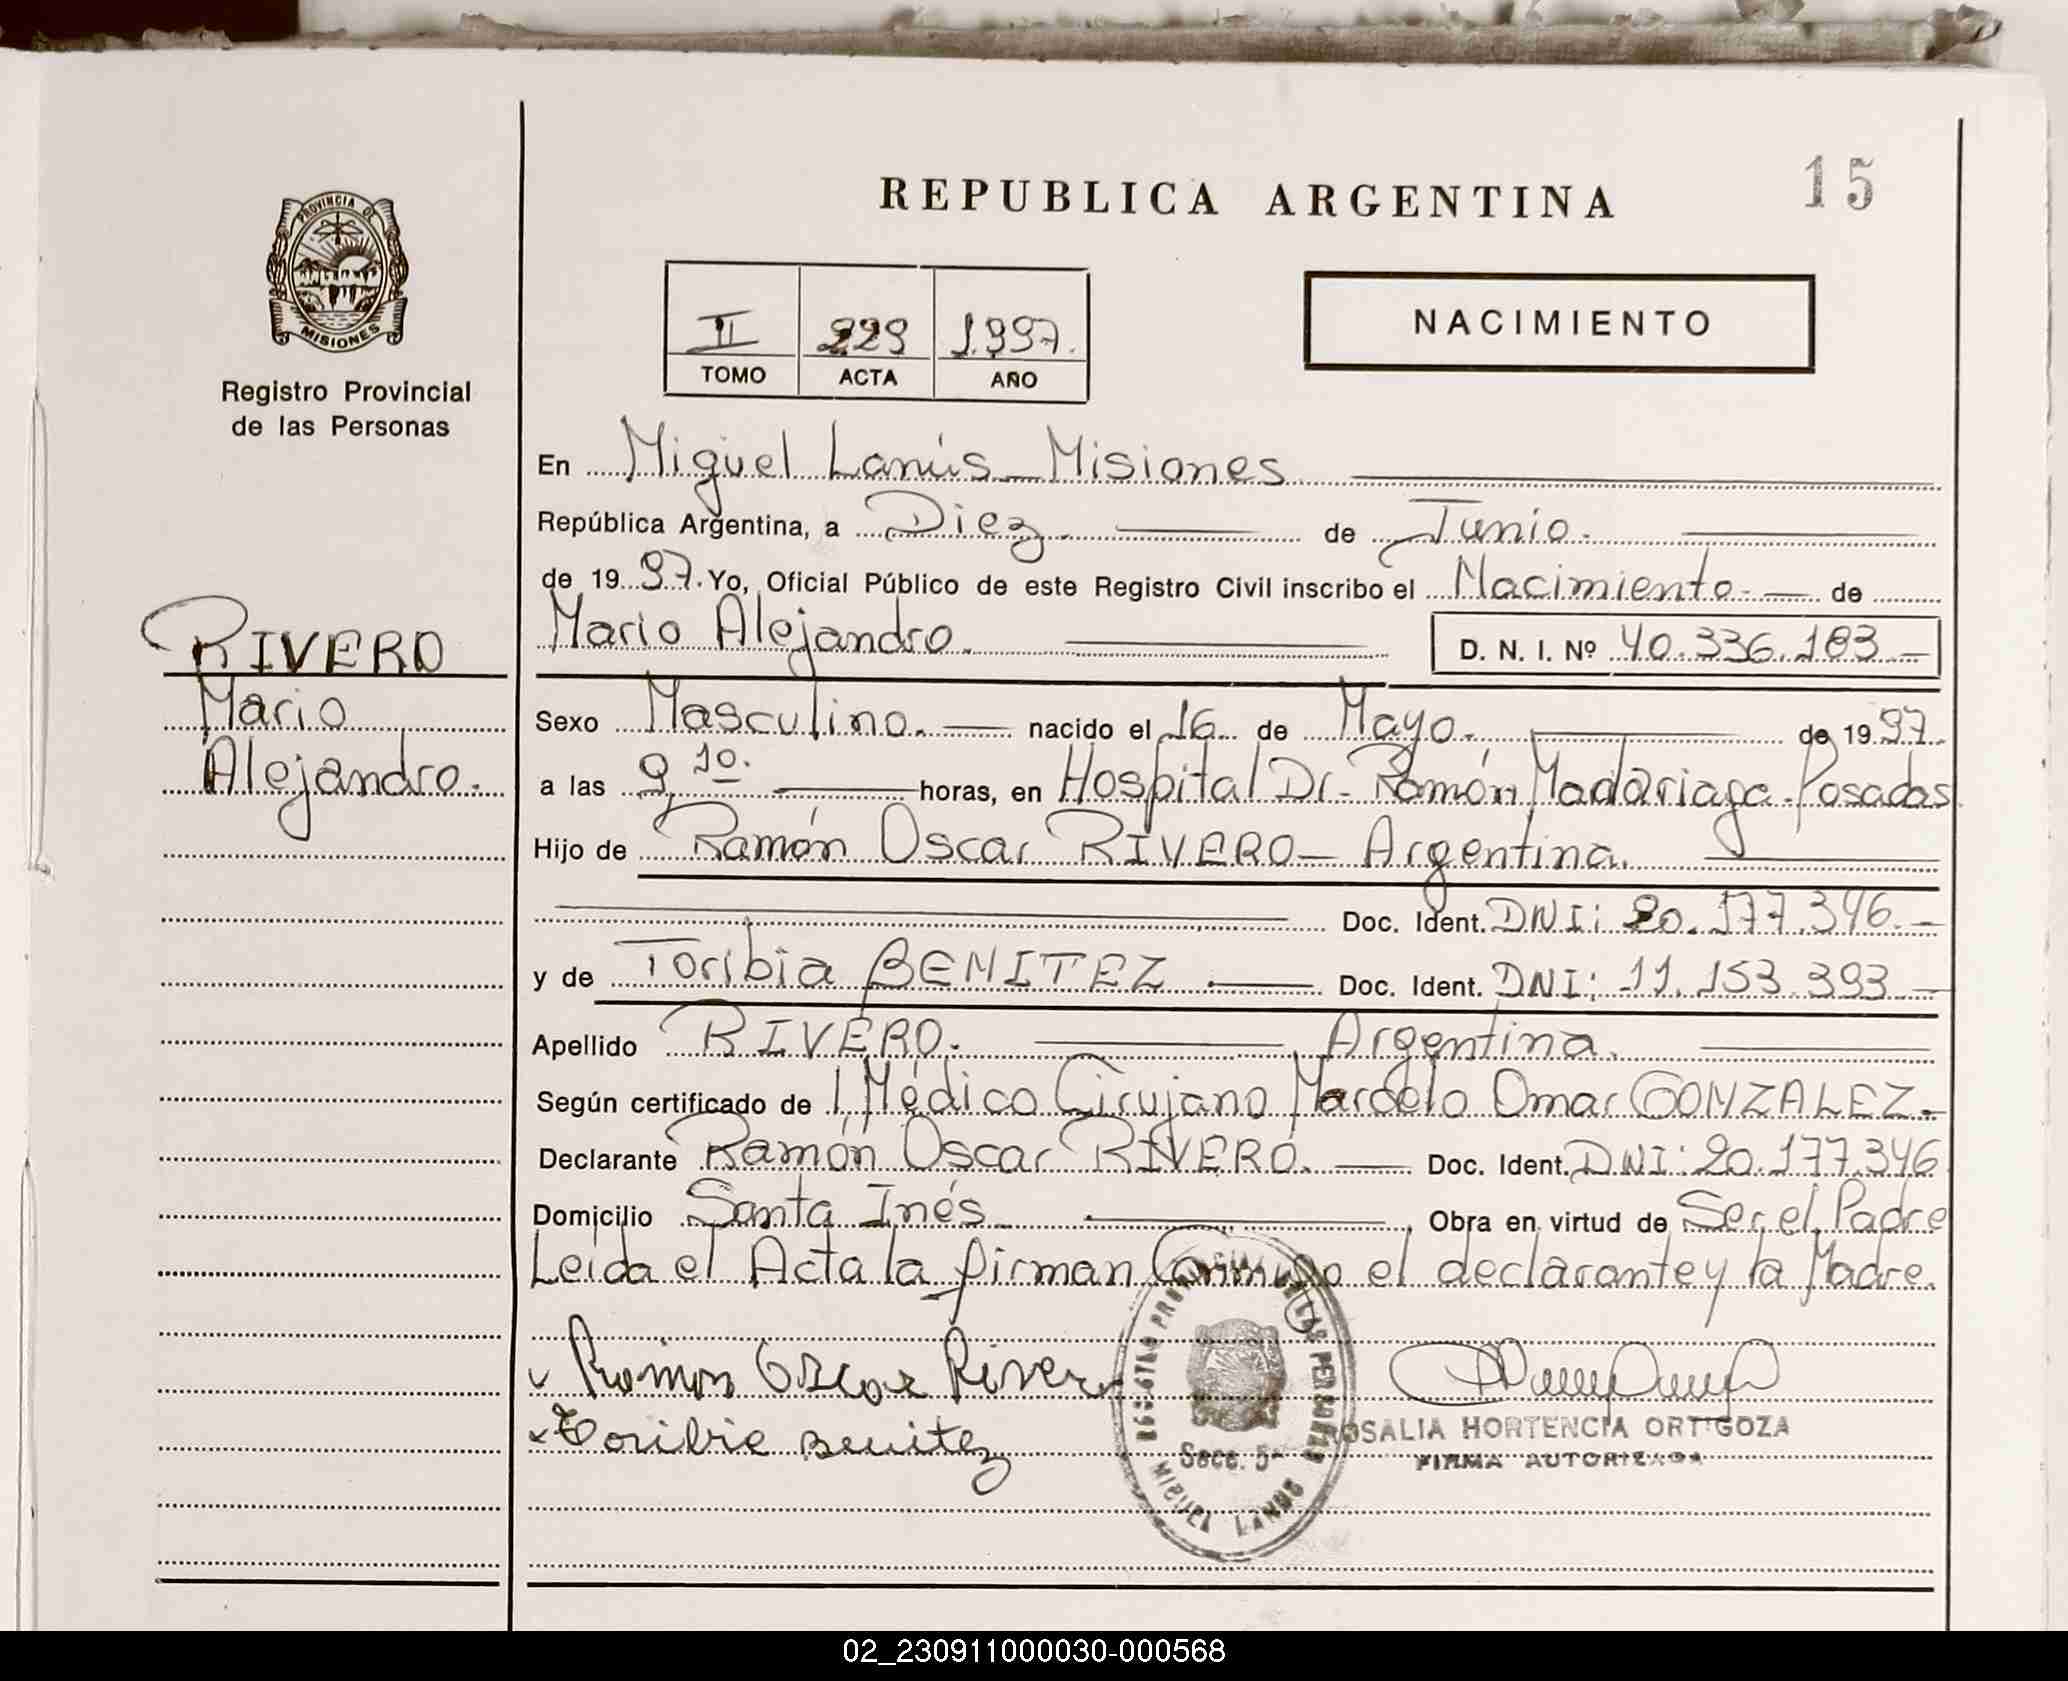 15
REPUBLICA ARGENTINA
PROVINCIA DE
MISIONES
Registro Provincial
de las Personas
II 229 1.997.
TOMO ACTA AÑO
NACIMIENTO
En Miguel Lanús - Misiones
República Argentina, a Diez. de Junio.
de 19 97. Yo, Oficial Público de este Registro Civil inscribo el Nacimiento. de
Mario Alejandro. D. N. I. Nº 40.336.183
RIVERO
Mario
Alejandro.
Sexo Masculino. nacido el 16 de Mayo. de 19 97.
a las 9,10. horas, en Hospital Dr. Ramón Madariaga - Posadas
Hijo de Ramón Oscar RIVERO - Argentina.
Doc. Ident. DNI: 20.177.346.-
y de Toribia BENITEZ Doc. Ident. DNI: 11.153.393
Apellido RIVERO. Argentina.
Según certificado de l Médico Cirujano Marcelo Omar GONZALEZ.-
Declarante Ramón Oscar RIVERO. Doc. Ident. DNI: 20.177.346
Domicilio Santa Inés Obra en virtud de Ser el Padre
Leida el Acta la firman Conmigo el declarante y la Madre.
Ramon Oscar Rivero
Toribie Benitez
REGISTRO PROVINCIAL DE LAS PERSONAS
Secc. 5ª
MIGUEL LANUS
ROSALIA HORTENCIA ORTIGOZA
FIRMA AUTORIZADA
02_230911000030-000568